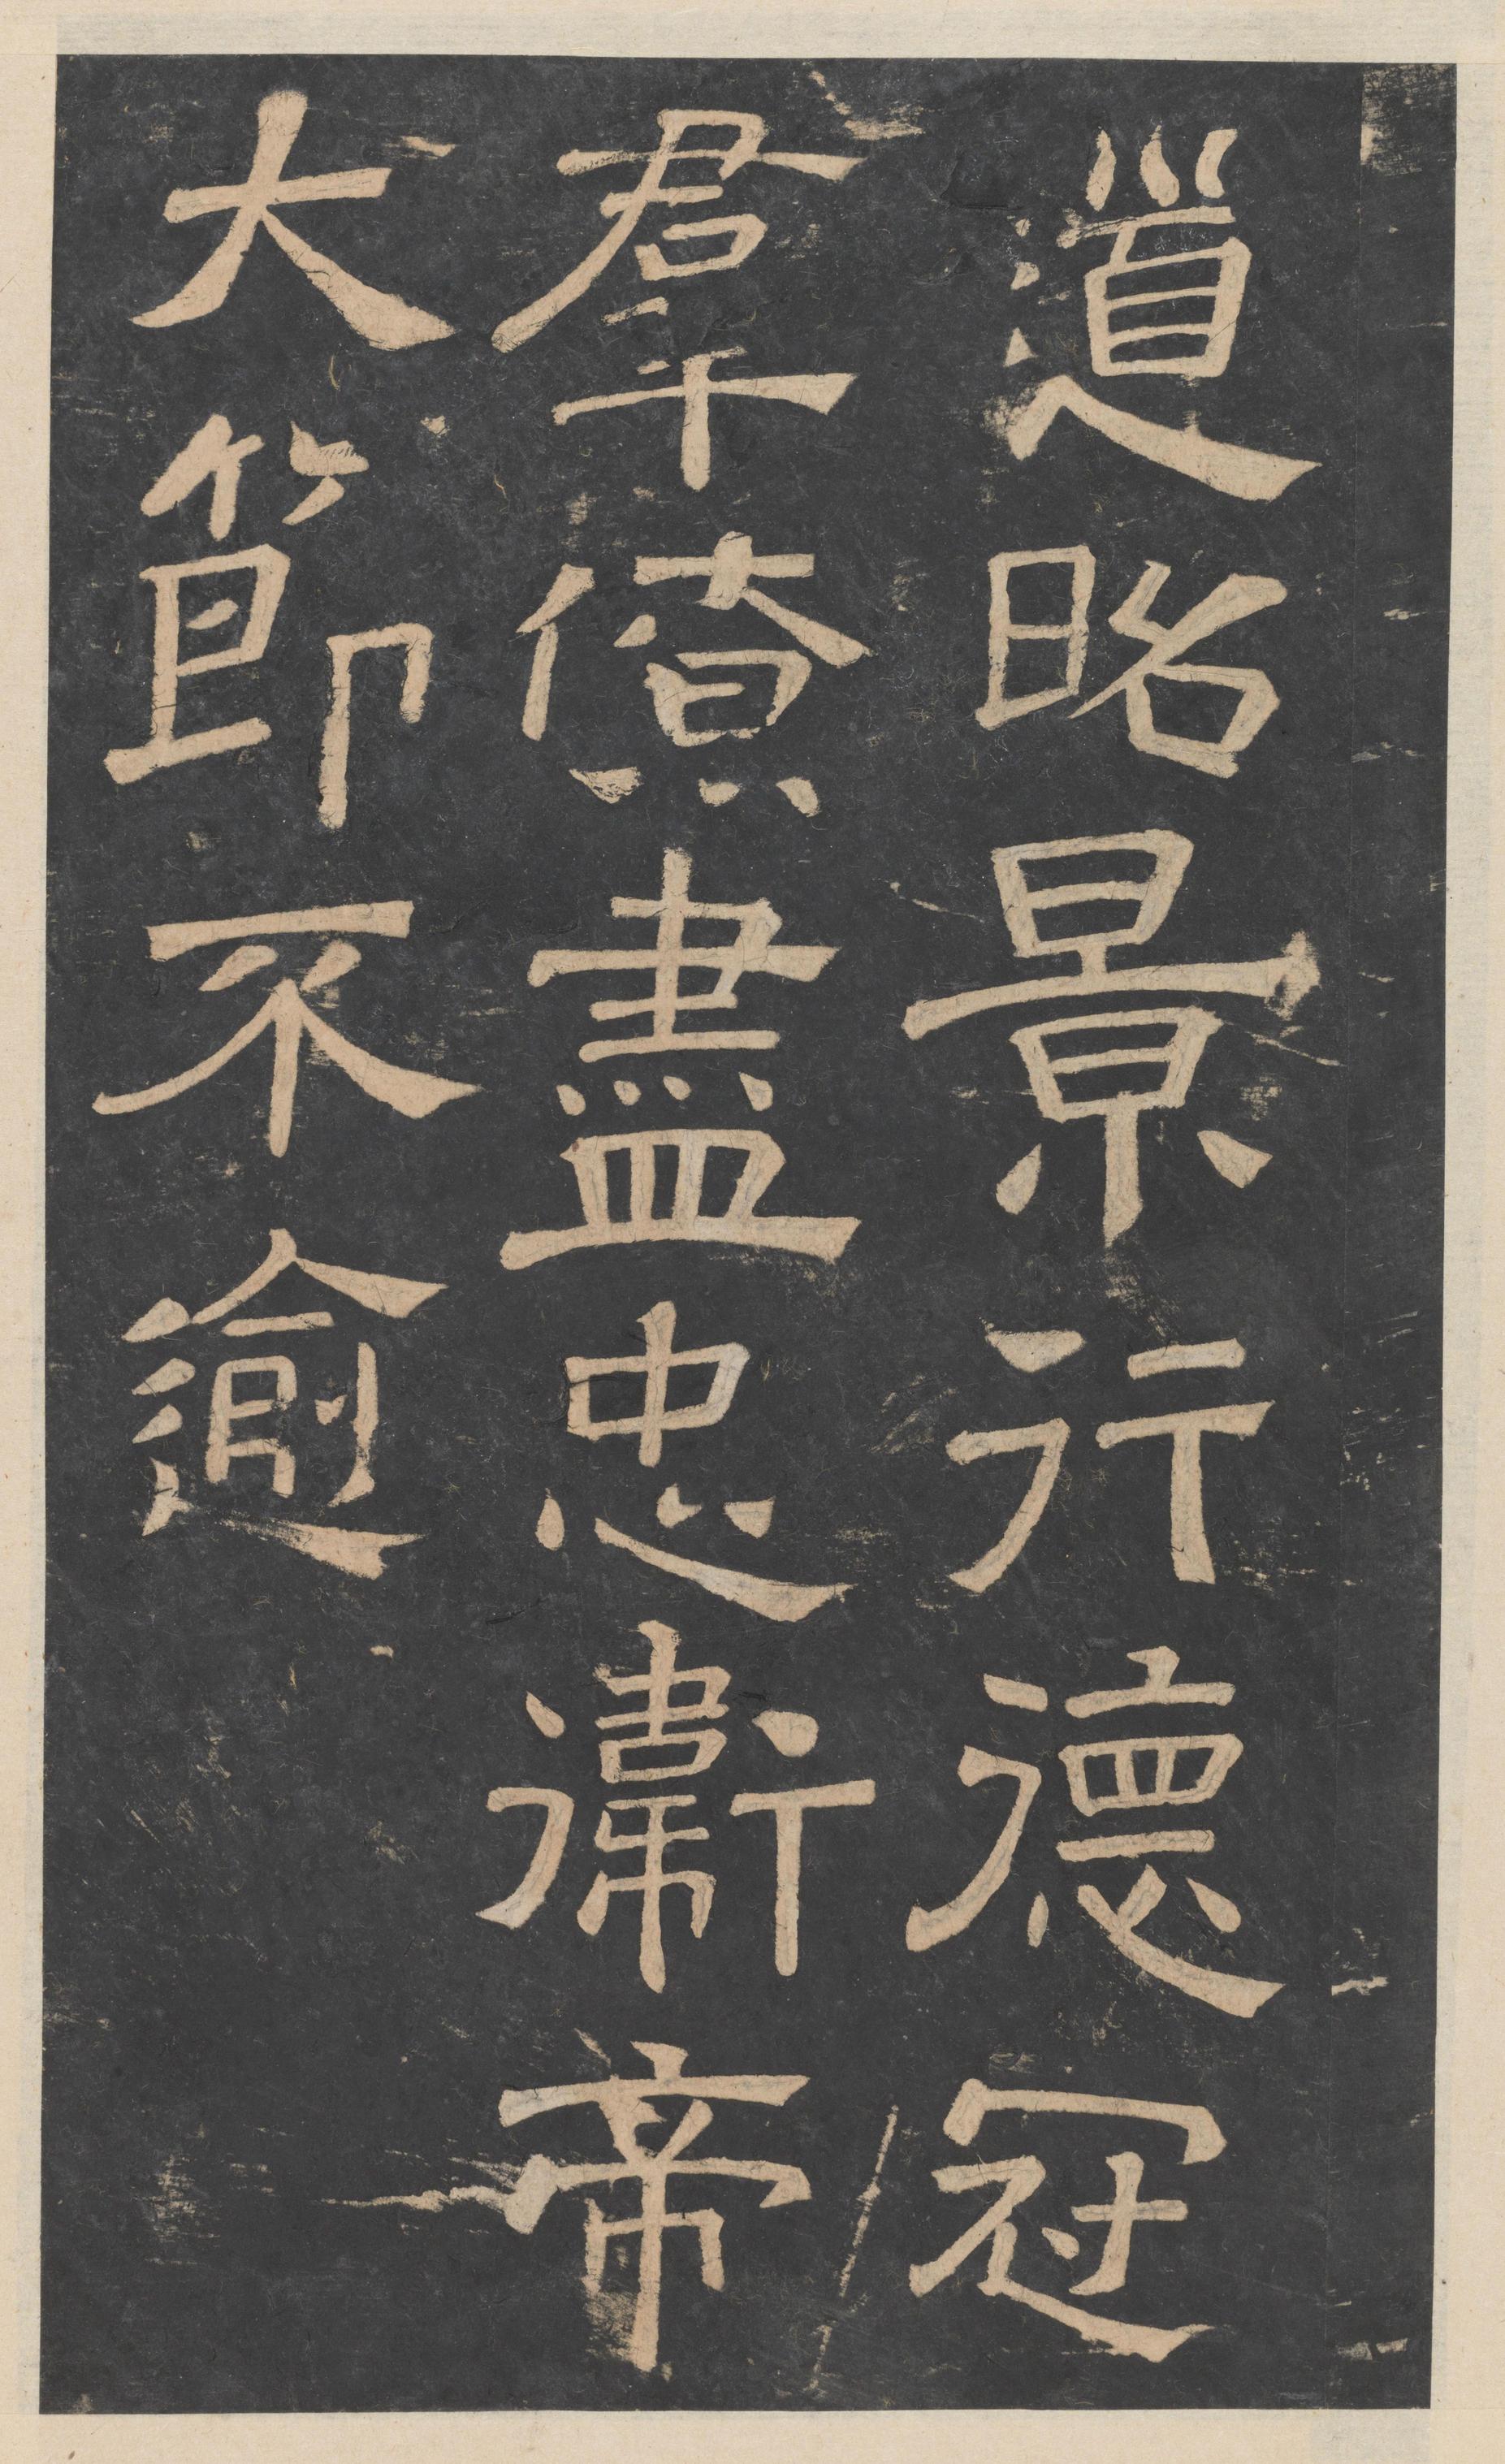 道昭景行德冠
羣僚盡忠衛帝
大節不逾